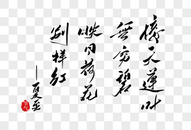 接天莲叶
无穷碧
映日荷花
别样红
——夏至